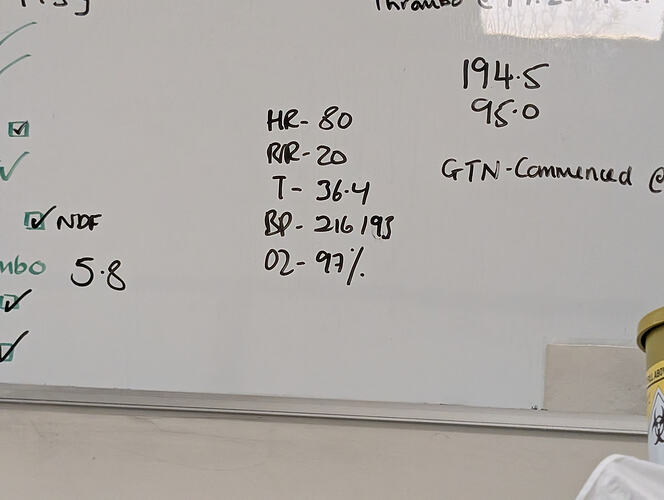 Thrombo @
194.5
95.0
HR- 80
RR- 20
T - 36.4
GTN-Commenced @
BP - 216/93
NDF
mbo 5.8
O2 - 97%